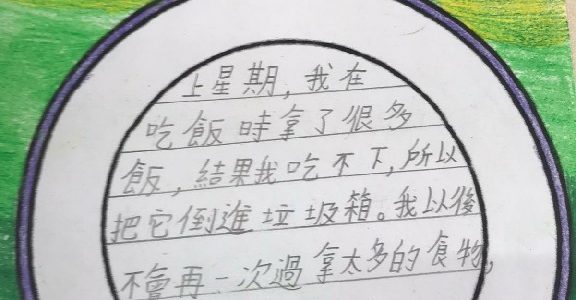 上星期，我在
吃飯時拿了很多
飯，結果我吃不下，所以
把它倒進垃圾箱。我以後
不會再一次過拿太多的食物，